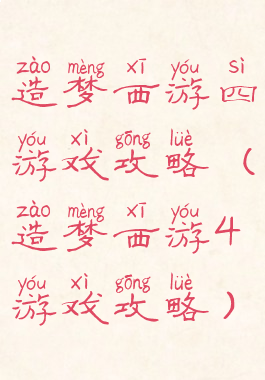 zào mèng xī yóu sì
造梦西游四
yóu xì gōng lüè
游戏攻略（
zào mèng xī yóu
造梦西游4
yóu xì gōng lüè
游戏攻略）